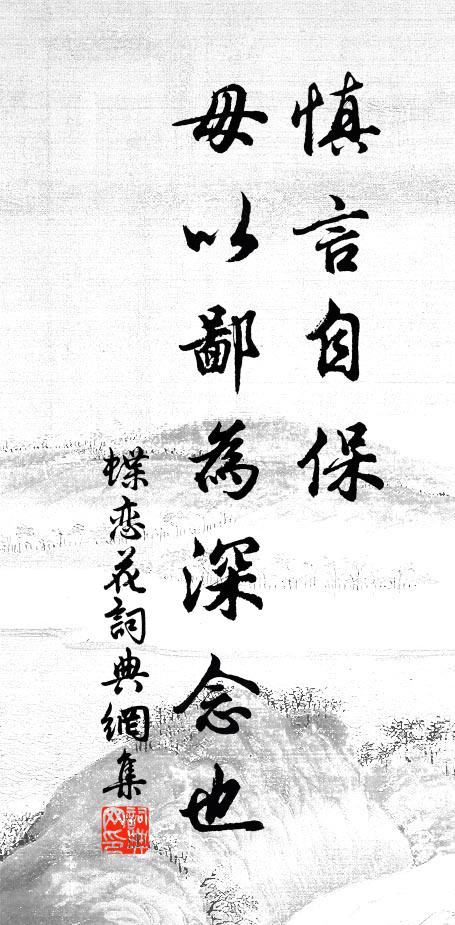 慎言自保
毋以鄙為深念也
蝶恋花詞典網集